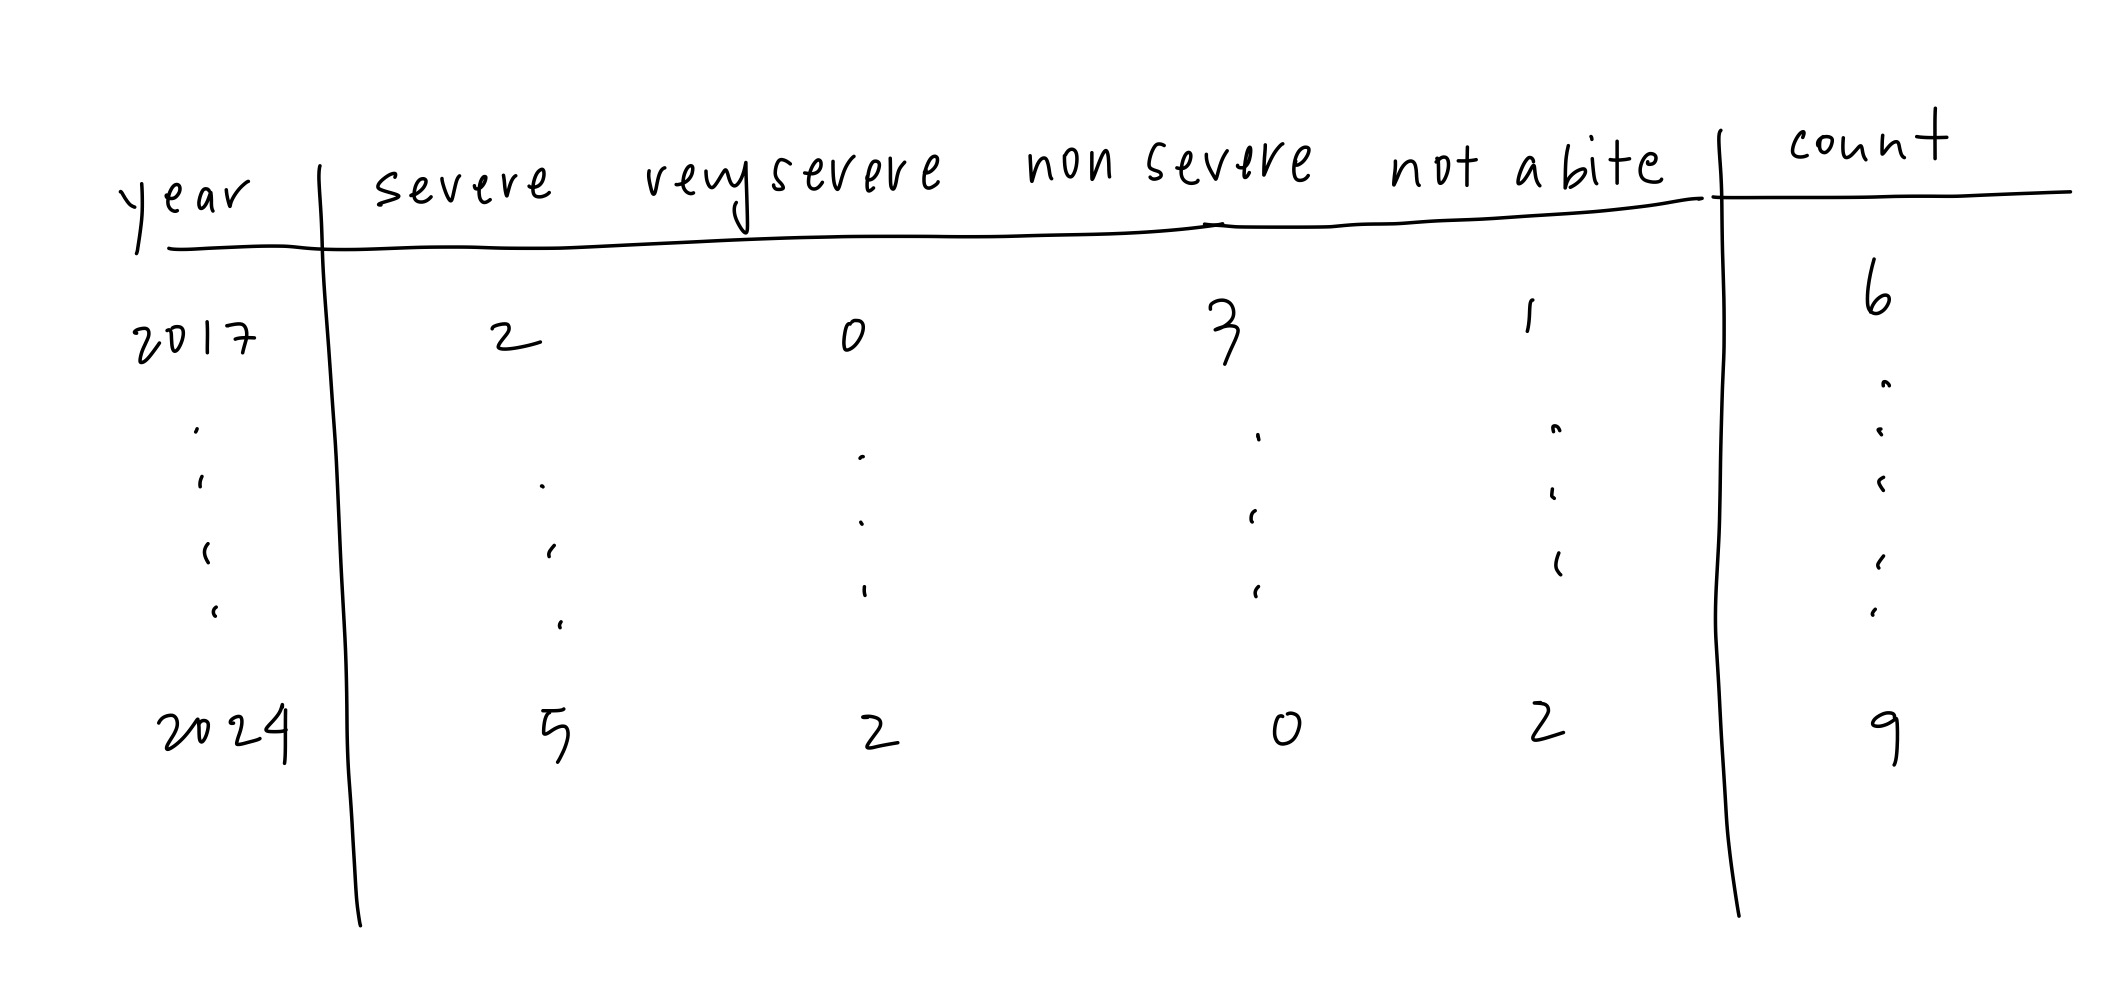 year severe very severe non severe not a bite count
2017 2 0 3 1 6
2024 5 2 0 2 9